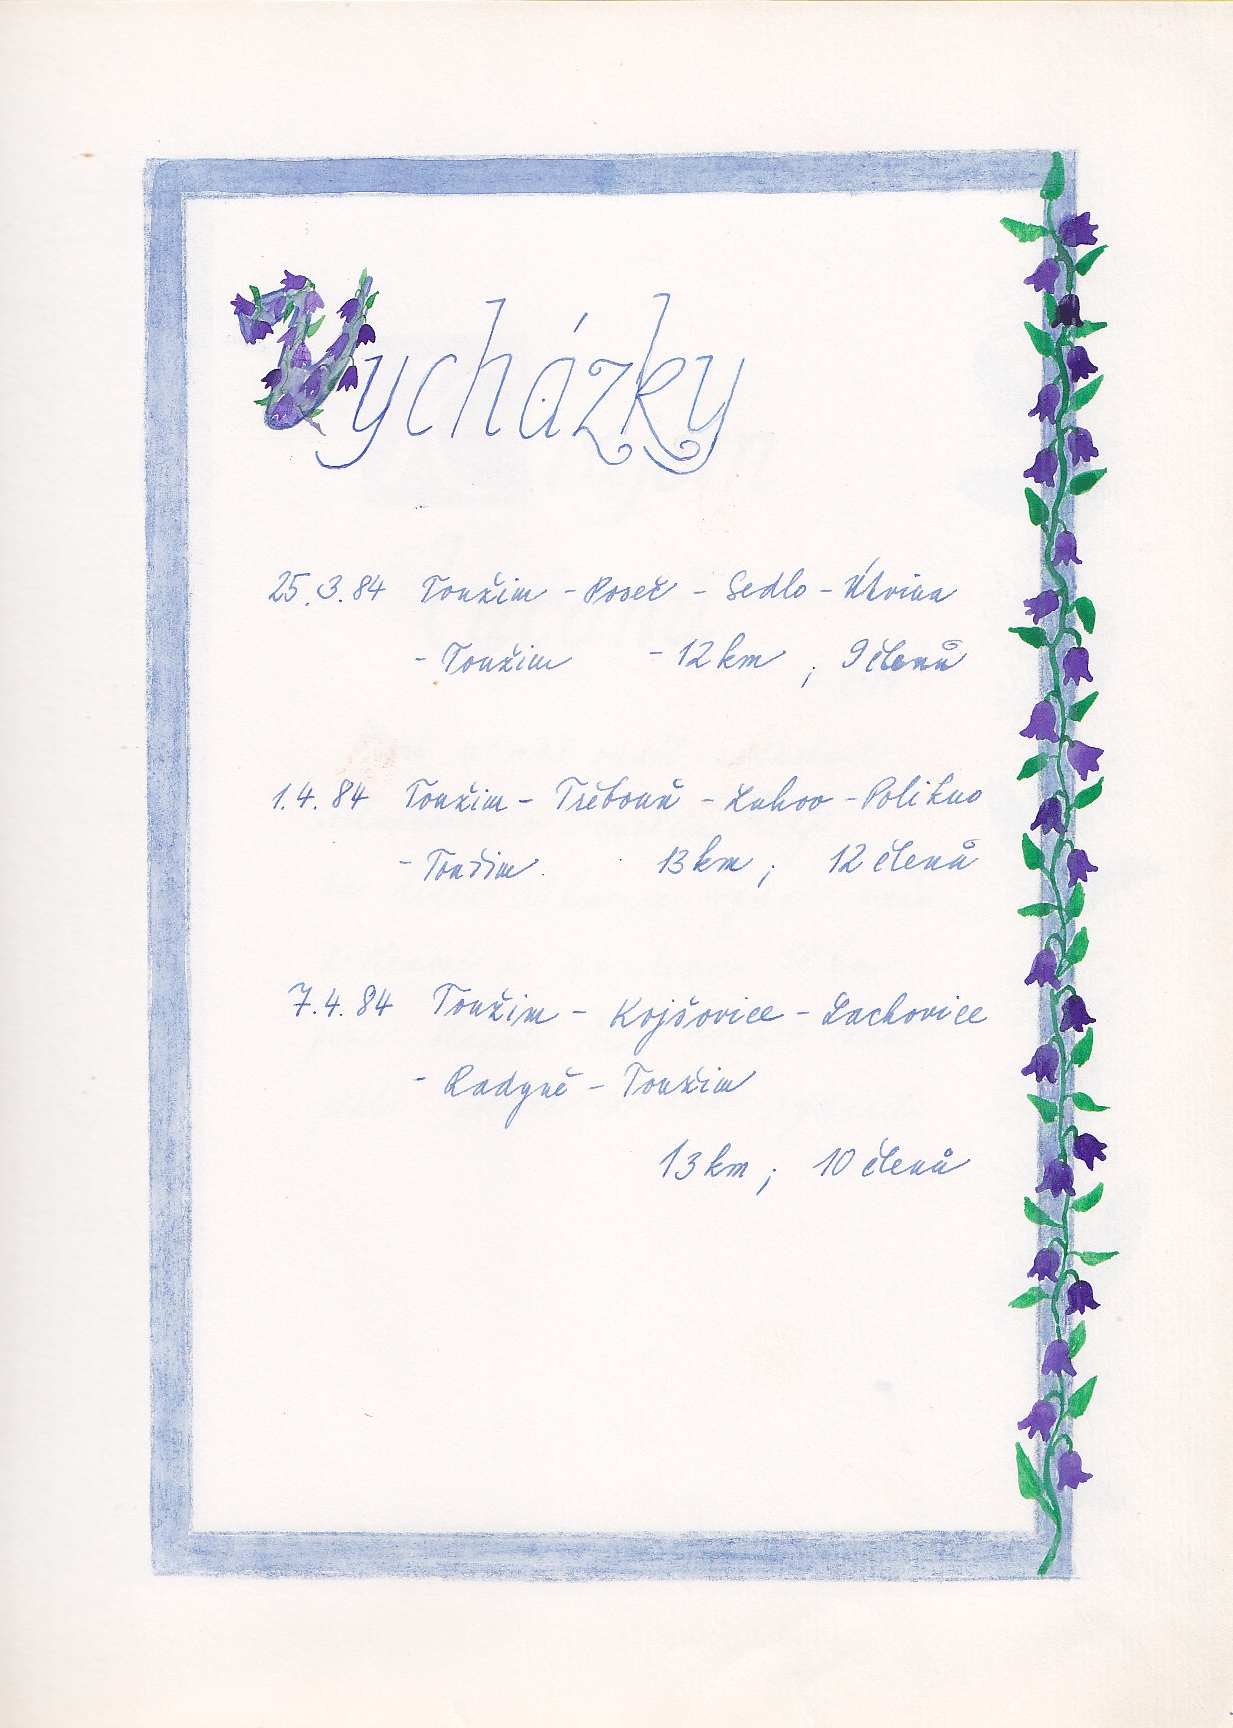 Vycházky
25.3.84 Toužim - Poseč - Sedlo - Útvina
- Toužim - 12 km ; 9 členů
1.4.84 Toužim - Třebouň - Luhov - Polikno
- Toužim 13 km ; 12 členů
7.4.84 Toužim - Kojšovice - Lachovice
- Radyně - Toužim
13 km ; 10 členů